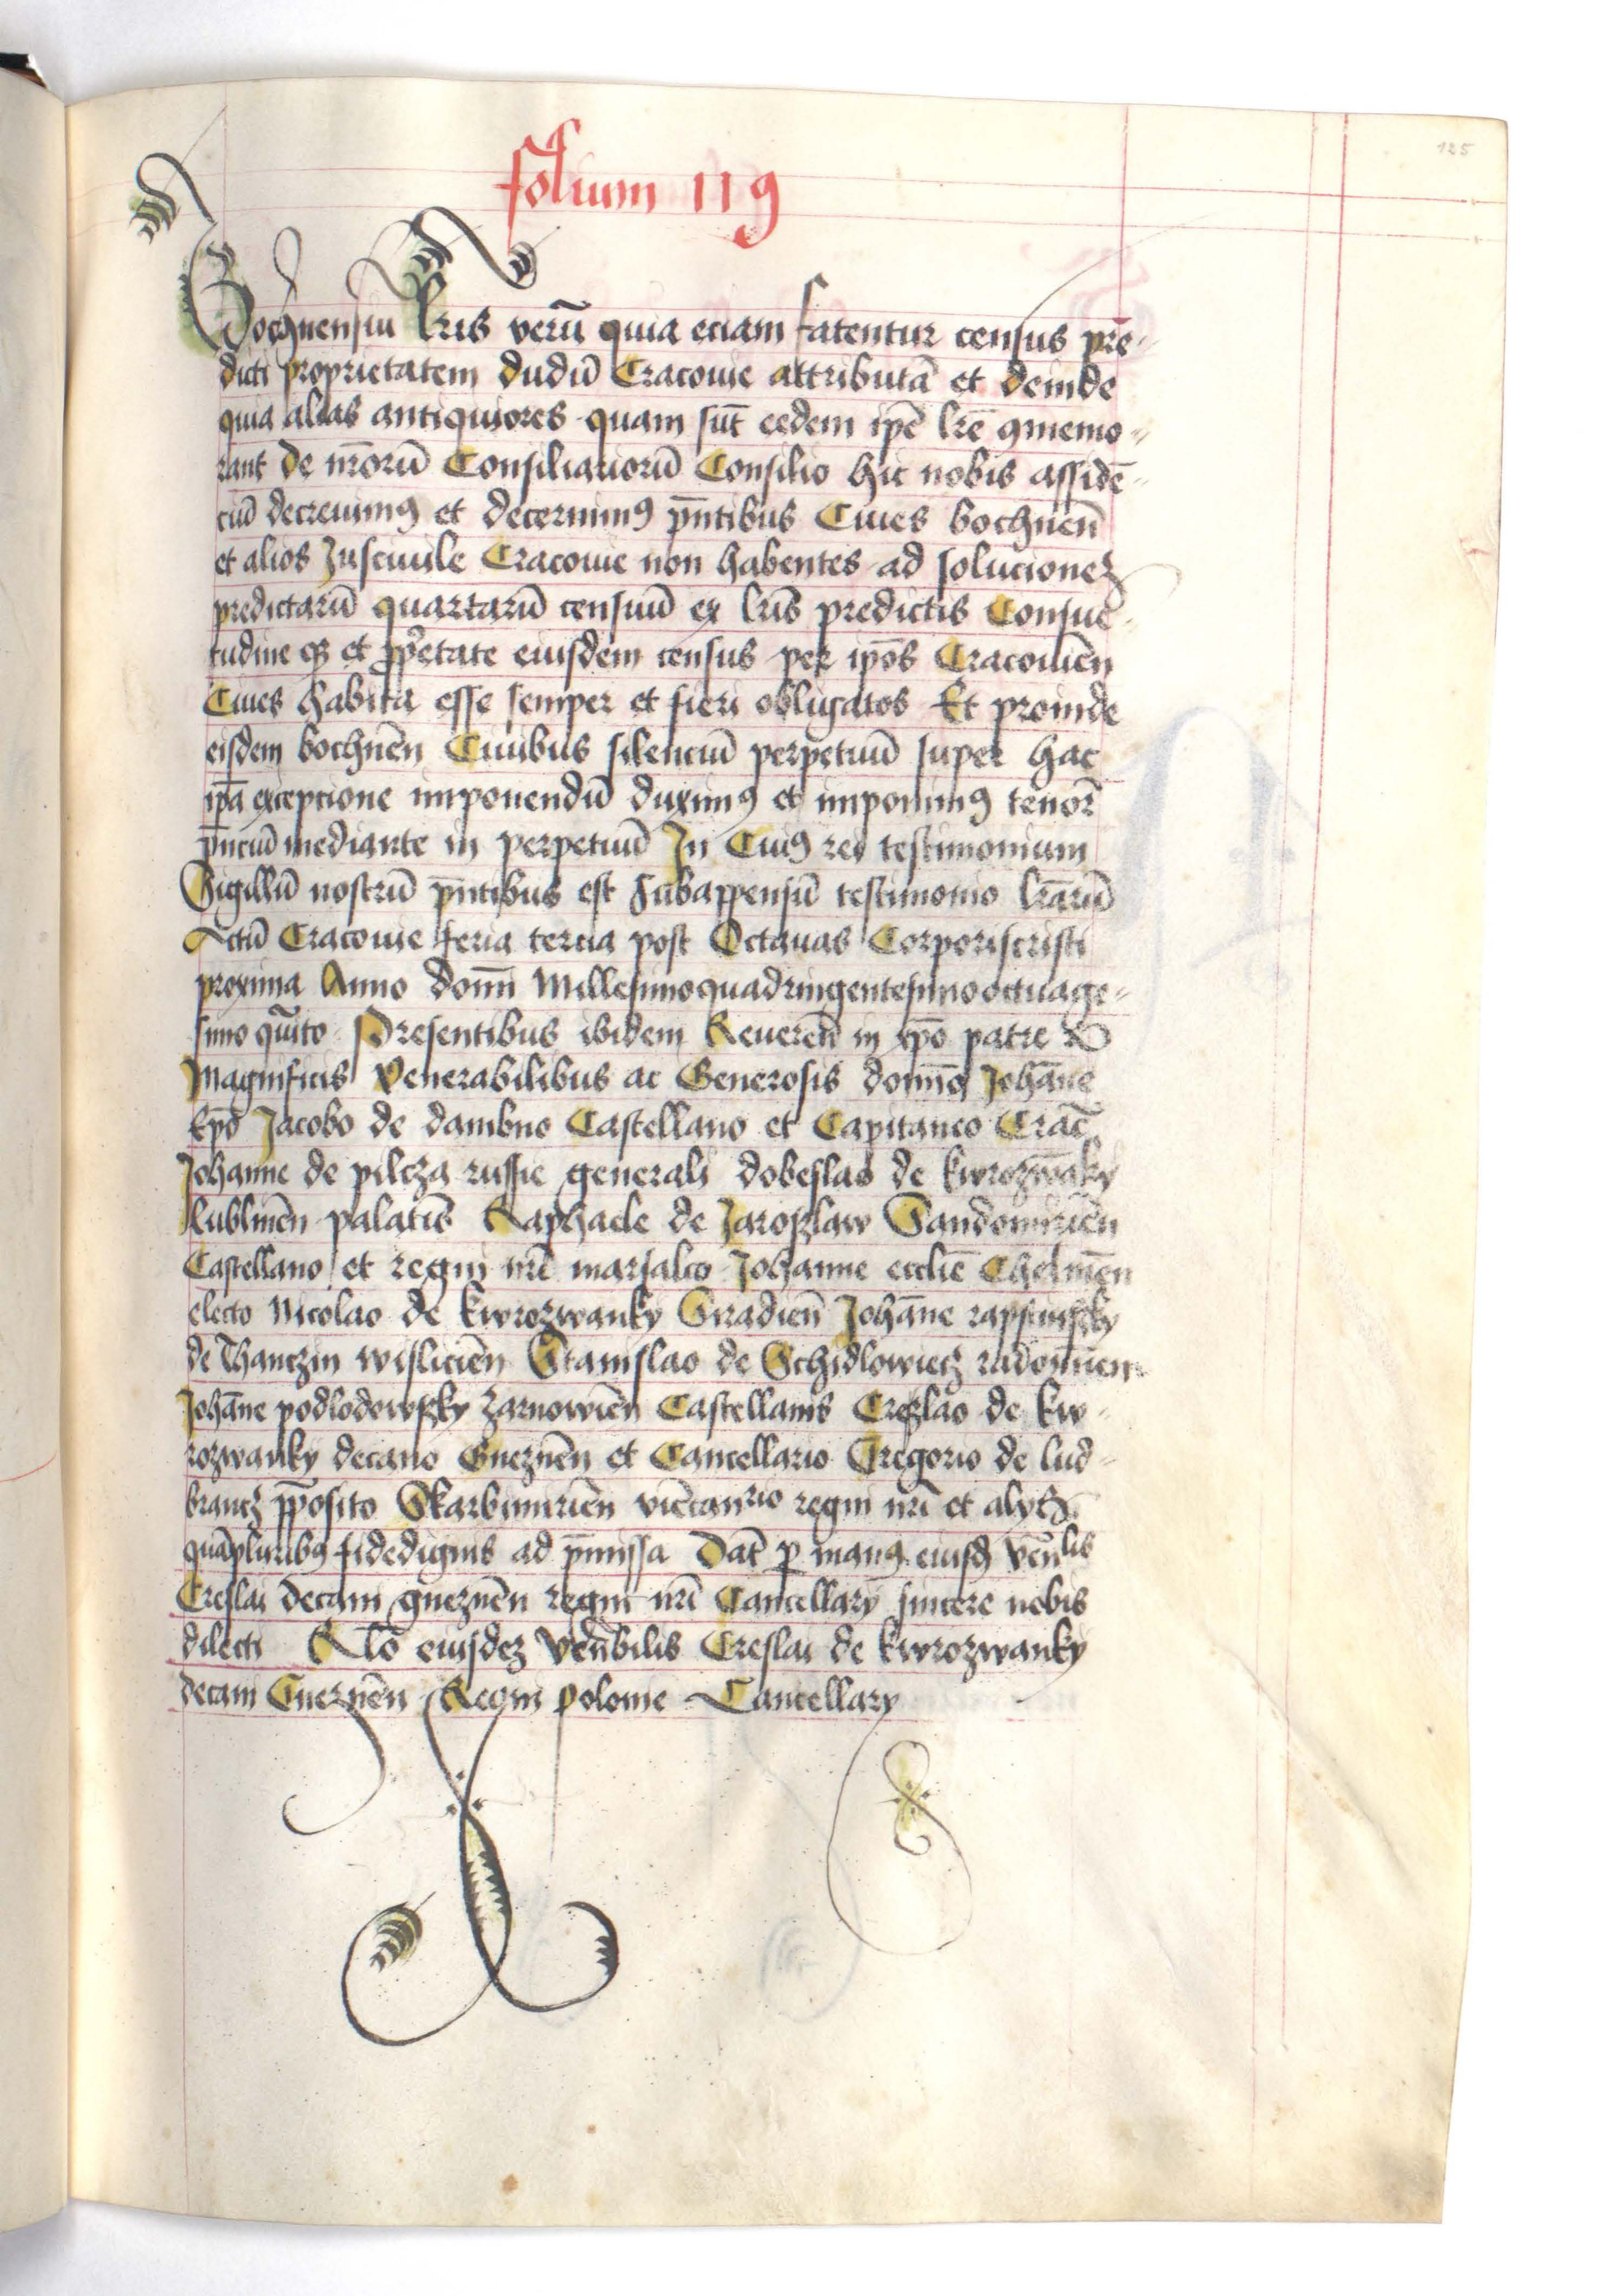 125
folium 119
Bochnensiu lr̃is verū quia eciam fatentur census pre-
dicti proprietatem dudū Cracouie attributā et deinde
quia alias antiquiores quam sūt eedem ip̄e lr̄e ꝯmemo-
rant de nr̄orū Consiliariorū Consilio hic nobis assidē-
ciū decreuimꝰ et decernimꝰ p̄ntibus Ciues bochneñ
et alios Juscuile Cracouie non habentes ad solucioneꝫ
predictarū quartarū censuū ex lr̄is predictis Consue-
tudine et ꝓp̄etate eiusdem census per ip̄os Cracouieñ
Ciues habita esse semper et fieri obligatos Et proinde
eisdem bochneñ Ciuibus silenciū perpetuū super hac
ip̄a excepcione imponendū duximꝰ et imponimꝰ tenor̄
p̄nciū mediante in perpetuū In Cuiꝰ rei testimonium
Sigillū nostrū p̄ntibus est subappensū testimonio lr̄arū
Actū Cracouie feria tercia post Octauas Corporiscristi
proxima Anno domī Millesimoquadringentesimooctuage-
simo quīto Presentibus ibidem Reuerēd in xp̄o patre
Magnificis Venerabilibus ac Generosis domīs Johāne
Ep̄o Jacobo de dambno Castellano et Capitaneo Crac̄
Johanne de pilcza russie generali dobeslao de kwrozwāky
lublineñ palatīs Raphaele de Jaroslaw Sandomirieñ
Castellano et regni nr̄i marsalco Johanne eccliē Chelmeñ
electo Nicolao de kwrozwanky Siradieñ Johāne rapschinsky
de Thanczin wislicieñ Stanislao de Schidlowiecz radomieñ
Johāne podlodowsky zarnowieñ Castellanis Creslao de kw-
rozwanky decano Gnezneñ et Cancellario Gregorio de lud-
brancz p̄posito Skarbimirieñ vicecan̄rio regni nr̄i et alys
quāpluribꝰ fidedignis ad p̄missa Dat̄ ꝑ manꝰ eiusd̄ ven̄lis
Creslai decani gnezneñ regni nr̄i Cancellary sincere nobis
dilecti Rl̄o eiusdeꝫ Ven̄bilis Creslai de kwrozwanky
decani Gnezneñ Regni polonie Cancellary